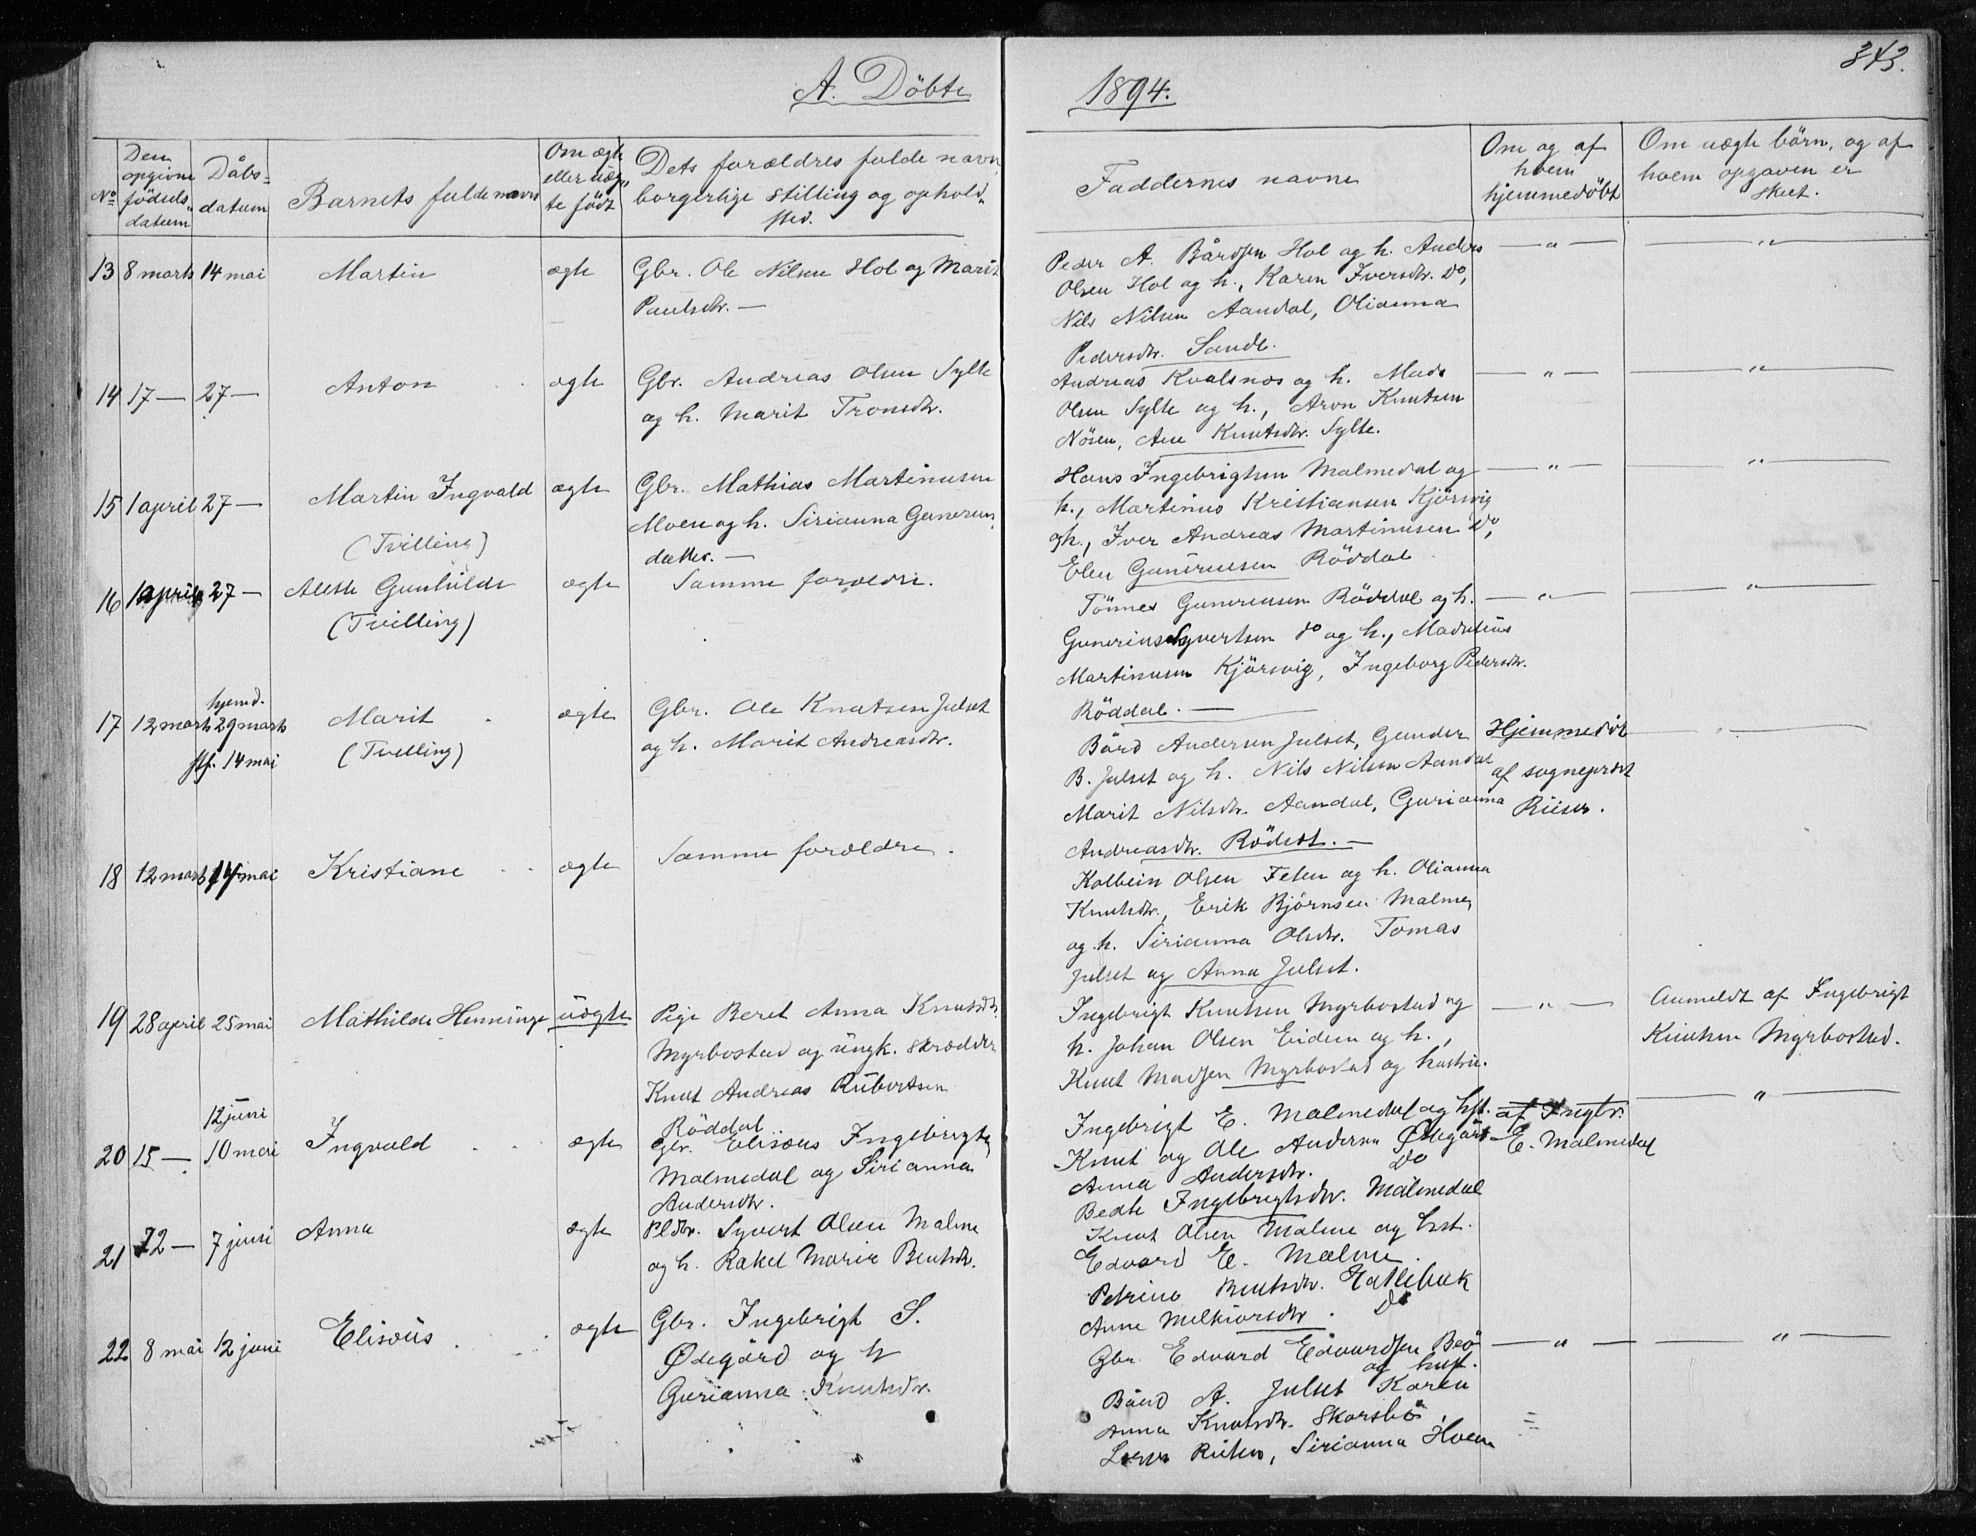 343.
A. Döbte
1894.
No
Den opgivne fødselsdatum
Dåbsdatum
Barnets fulde navn
Om ægte eller uægte født
Dets forældres fulde navn, borgerlige stilling og opholdssted.
Faddernes navne
Om og af hvem hjemmedöbt
Om uægte börn, og af hvem opgaven er skeet.
13 8 marts 14 mai Martin ægte Gbr. Ole Nilsen Hol og Marit
Paulsdtr. —
Peder A. Bårdsen Hol og h. Anders — " — — " —
Olsen Hol og h., Karen Iversdtr. Do,
Nils Nilsen Aandal, Olianna
Pedersdtr. Sande.
14 17 — 27 — Anton ægte Gbr. Andreas Olsen Sylte
og h. Marit Tronsdtr.
Andreas Kvalsnes og h. Mads — " — — " —
Olsen Sylte og h., Aron Knutsen
Nösen, Ane Knutsdtr. Sylte.
15 1 april 27 — Martin Ingvald ægte Gbr. Mathias Martinusen
(Tvilling) Moen og h. Sirianna Gunerius
datter. —
Hans Ingebrigtsen Malmedal og — " — — " —
h., Martinus Kristiansen Kjörsvig
og h., Iver Andreas Martinusen Do,
Elen Guneriusen Röddal
16 1 april 27 — Aleth Gunhilde ægte Samme forældre.
(Tvilling)
Tönnes Guneriusen Röddal og h. — " — — " —
Gunerius Syvertsen do og h.,
Martinusen Kjörsvig, Ingeborg Pedersdtr.
Röddal. —
17 12 marts hjemd. 29 marts Marit ægte Gbr. Ole Knutsen Julset
stf. 14 mai (Tvilling) og h. Marit Andreasdtr.
Bård Andersen Julset, Gunder Hjemmedöbt
B. Julset og h. Nils Nilsen Aandal af sogneprest
Marit Nilsdtr. Aandal, Gurianna
Andreasdtr. Rödset. —
18 12 marts 14 mai Kristiane ægte Samme forældre.
Kolbein Olsen og h. Olianna
Knutsdtr., Erik Björnsen Malme,
og h. Sirianna Olsdtr. Tomas
Julset og Anna Julset.
19 28 april 25 mai Mathilde Henninge uægte Pige Beret Anna Knutsdtr.
Myrbostad og ungk. skrædder
Knut Andreas Rubertsen
Röddal
Ingebrigt Knutsen Myrbostad og — " — Anmeldt af Ingebrigt
h. Johan Olsen Eidem og h., Knutsen Myrbostad.
Knut Madsen Myrbostad og hustru.
20 15 — 12 juni 10 mai Ingvald ægte Gbr. Elisæus Ingebrigts.
Malmedal og Sirianna
Andersdtr.
Ingebrigt E. Malmedal og hst. af Ingbr. — " —
Knut og Ole Andersen Ødegård E. Malmedal
Anna Andersdtr. Do
Beate Ingebrigtsdtr. Malmedal
21 22 — 7 juni Anna ægte Pldbr. Syvert Olsen Malme
og h. Rakel Marie Bentsdtr.
Knut Olsen Malme og hst.
Edvard E. Malme.
Petrine Bentsdtr. Hatlebak
Anne Melkiorsdtr. Do
22 8 mai 12 juni Elisæus ægte Gbr. Ingebrigt S.
Ødegård og h
Gurianna Knutsdtr.
Gbr. Edvard Edvardsen Beö — " — — " —
og hust.
Bård A. Julset Karen
Anna Knutsdtr. Skarsbö,
Sirianna Hoem